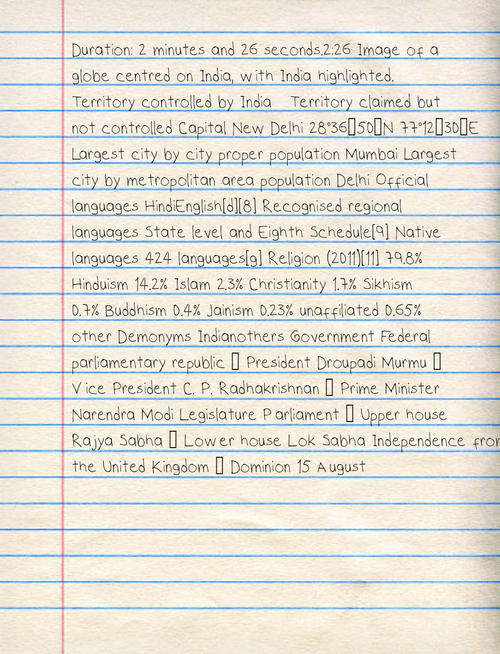 Duration: 2 minutes and 26 seconds.2:26 Image of a
globe centred on India, with India highlighted.
Territory controlled by India Territory claimed but
not controlled Capital New Delhi 28°36▯50▯N 77°12▯30▯E
Largest city by city proper population Mumbai Largest
city by metropolitan area population Delhi Official
languages HindiEnglish[d][8] Recognised regional
languages State level and Eighth Schedule[9] Native
languages 424 languages[g] Religion (2011)[11] 79.8%
Hinduism 14.2% Islam 2.3% Christianity 1.7% Sikhism
0.7% Buddhism 0.4% Jainism 0.23% unaffiliated 0.65%
other Demonyms Indianothers Government Federal
parliamentary republic ▯ President Droupadi Murmu ▯
Vice President C. P. Radhakrishnan ▯ Prime Minister
Narendra Modi Legislature Parliament ▯ Upper house
Rajya Sabha ▯ Lower house Lok Sabha Independence from
the United Kingdom ▯ Dominion 15 August